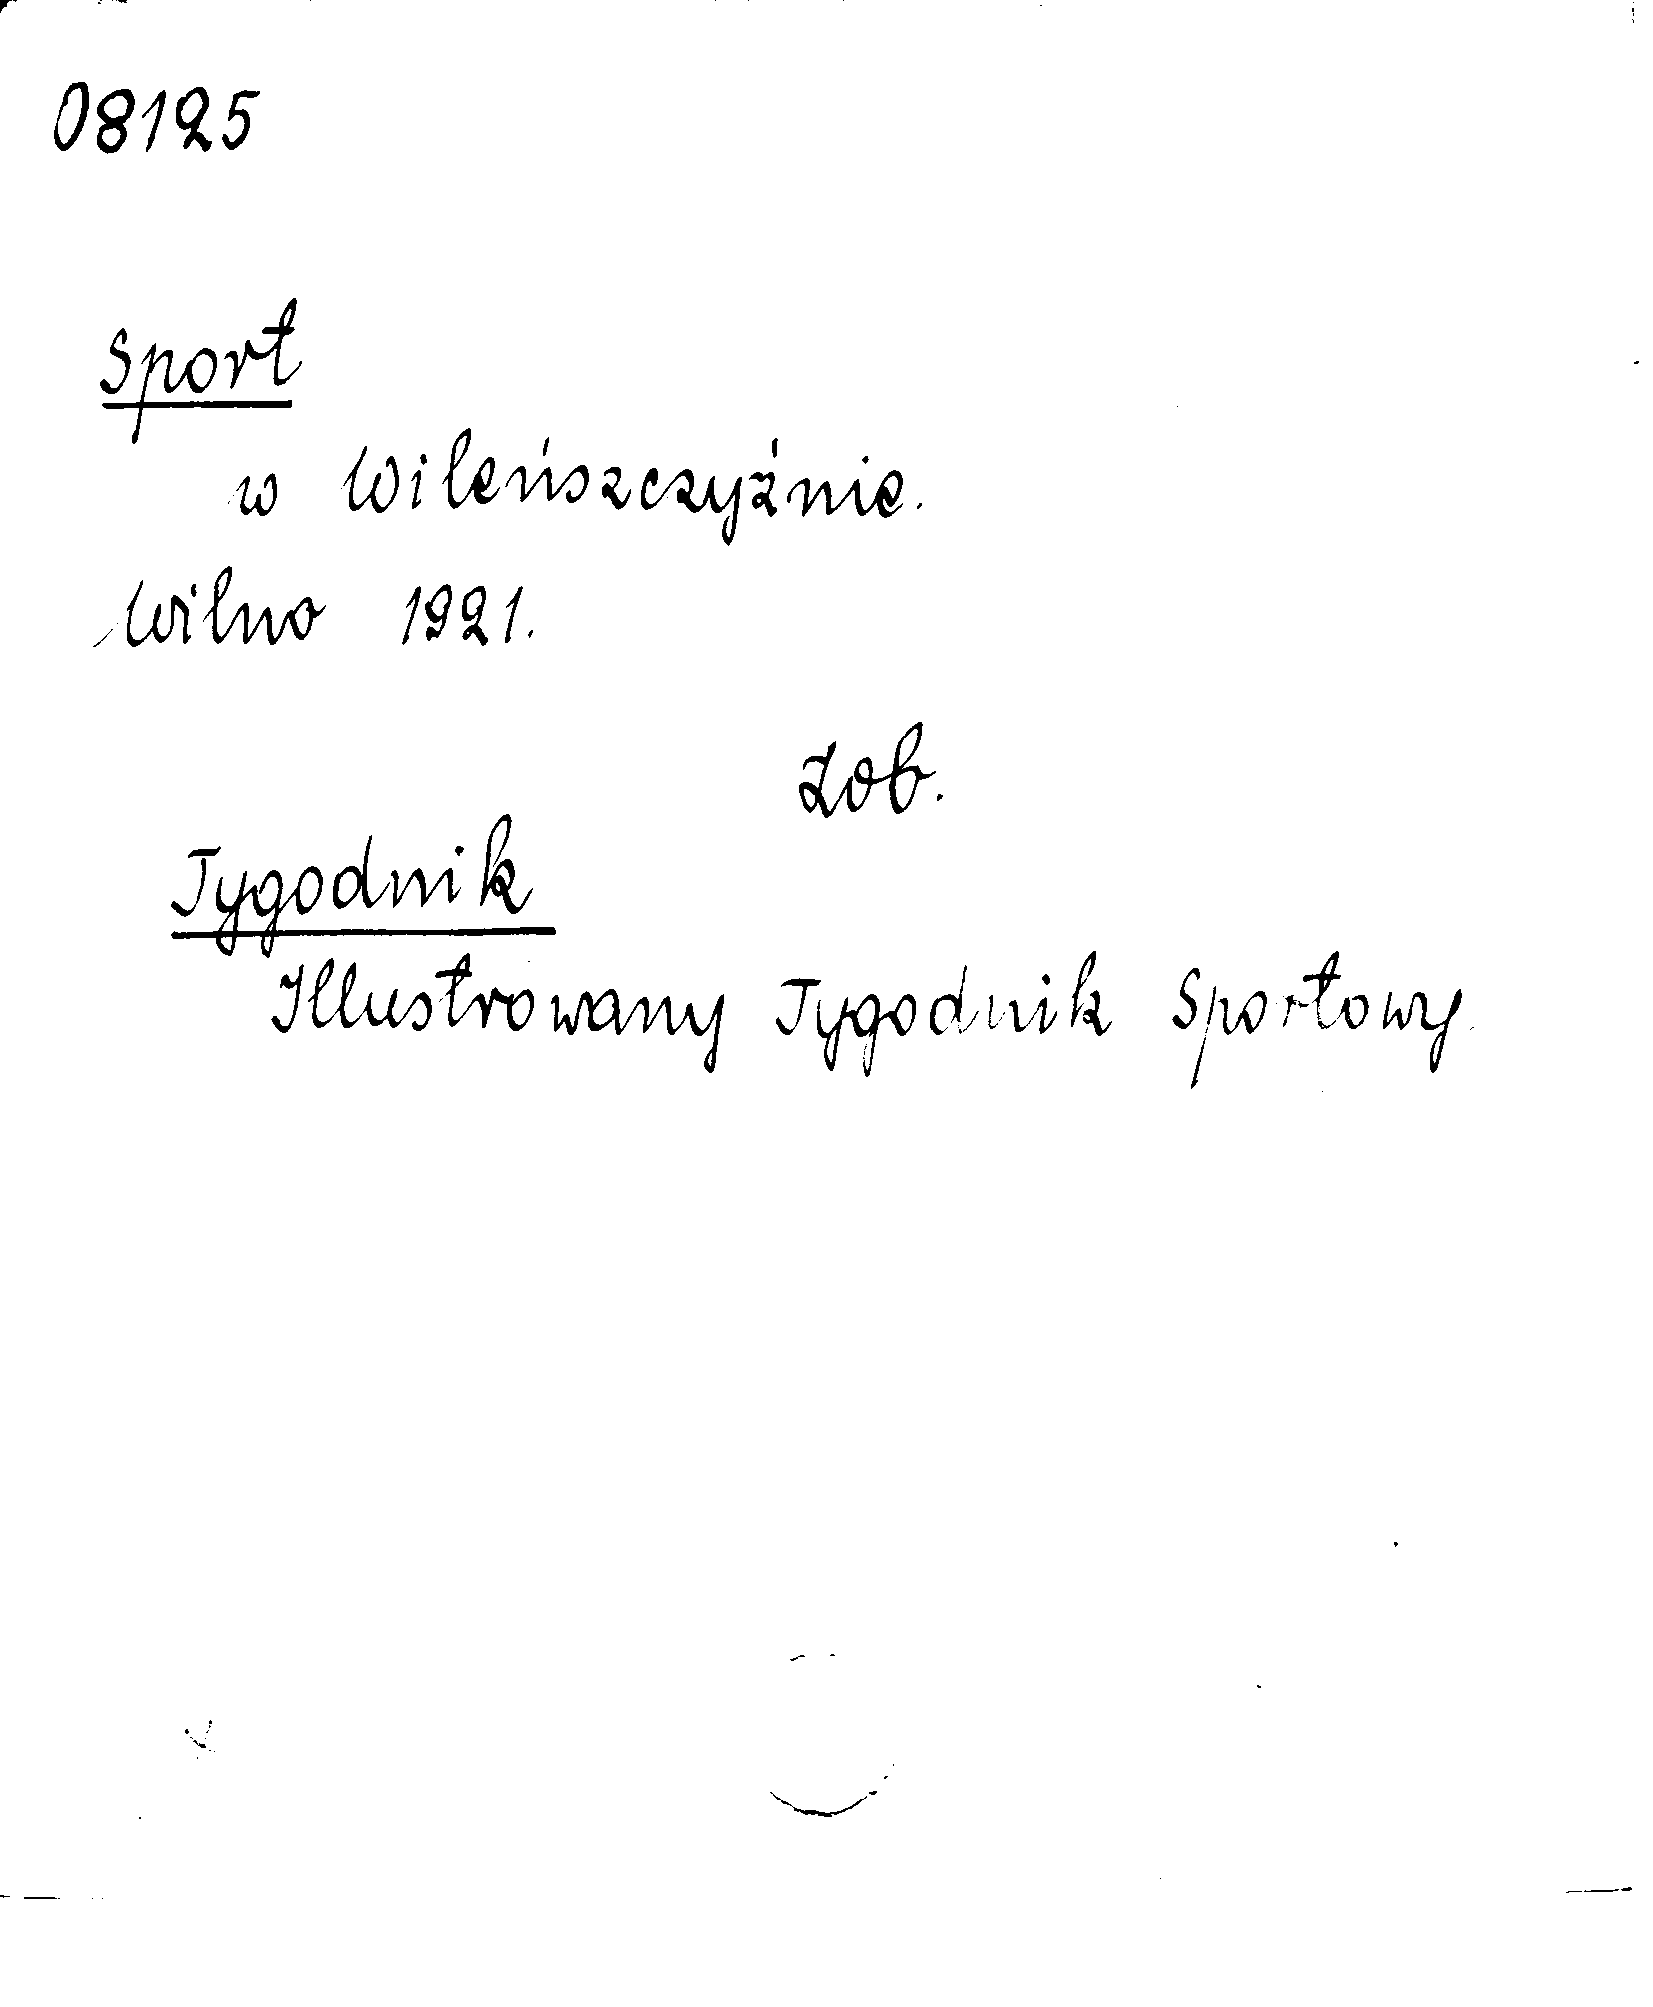 08125
Sport
w Wileńszczyźnie.
Wilno 1921.
Zob.
Tygodnik
Illustrowany Tygodnik Sportowy.